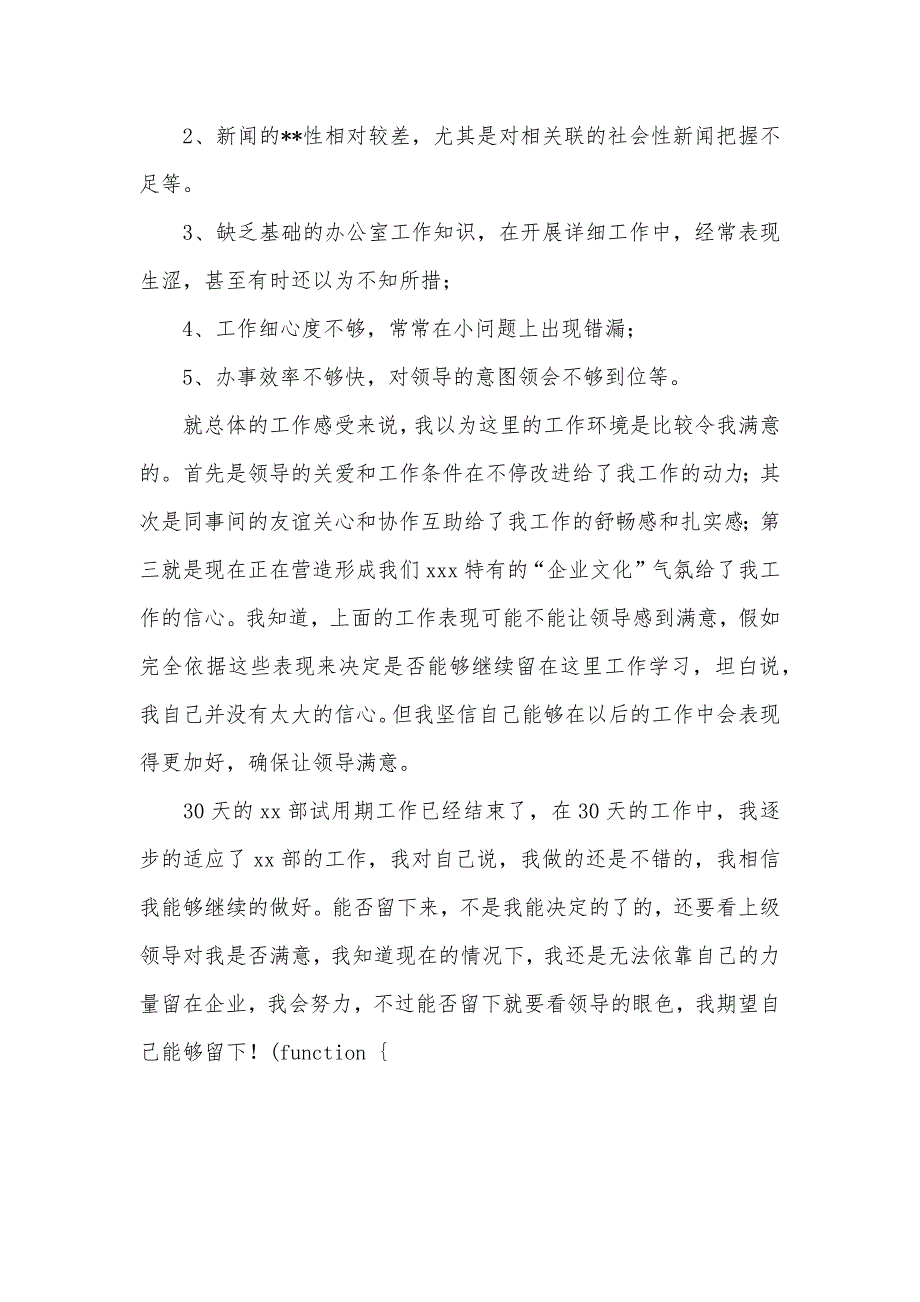 2、新闻的**性相对较差，尤其是对相关联的社会性新闻把握不
足等。
3、缺乏基础的办公室工作知识，在开展详细工作中，经常表现
生涩，甚至有时还以为不知所措；
4、工作细心度不够，常常在小问题上出现错漏；
5、办事效率不够快，对领导的意图领会不够到位等。
就总体的工作感受来说，我以为这里的工作环境是比较令我满意
的。首先是领导的关爱和工作条件在不停改进给了我工作的动力；其
次是同事间的友谊关心和协作互助给了我工作的舒畅感和扎实感；第
三就是现在正在营造形成我们 xxx 特有的“企业文化”气氛给了我工
作的信心。我知道，上面的工作表现可能不能让领导感到满意，假如
完全依据这些表现来决定是否能够继续留在这里工作学习，坦白说，
我自己并没有太大的信心。但我坚信自己能够在以后的工作中会表现
得更加好，确保让领导满意。
30 天的 xx 部试用期工作已经结束了，在 30 天的工作中，我逐
步的适应了 xx 部的工作，我对自己说，我做的还是不错的，我相信
我能够继续的做好。能否留下来，不是我能决定的了的，还要看上级
领导对我是否满意，我知道现在的情况下，我还是无法依靠自己的力
量留在企业，我会努力，不过能否留下就要看领导的眼色，我期望自
己能够留下！(function {